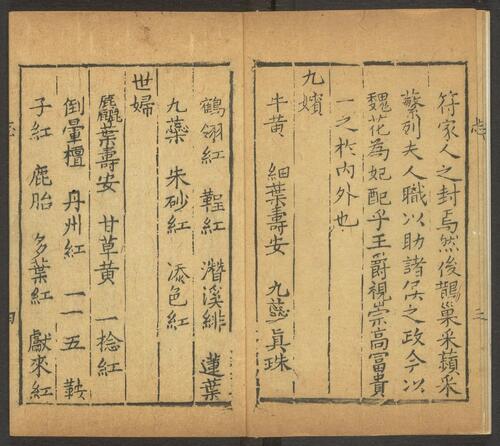 符家人之封焉然後鵲巢采蘋采
蘩列夫人職以助諸侯之政今以
魏花為妃配乎王爵視崇高富貴
一之於内外也
九嬪
牛黄 細葉壽安 九蘂真珠
三
鶴翎紅 鞓紅 潛溪緋 蓮葉
九蘂 朱砂紅 添色紅
世婦
麤葉壽安 甘草黄 一捻紅
倒暈檀 丹州紅 一百五 鞍
子紅 鹿胎 多葉紅 獻來紅
四